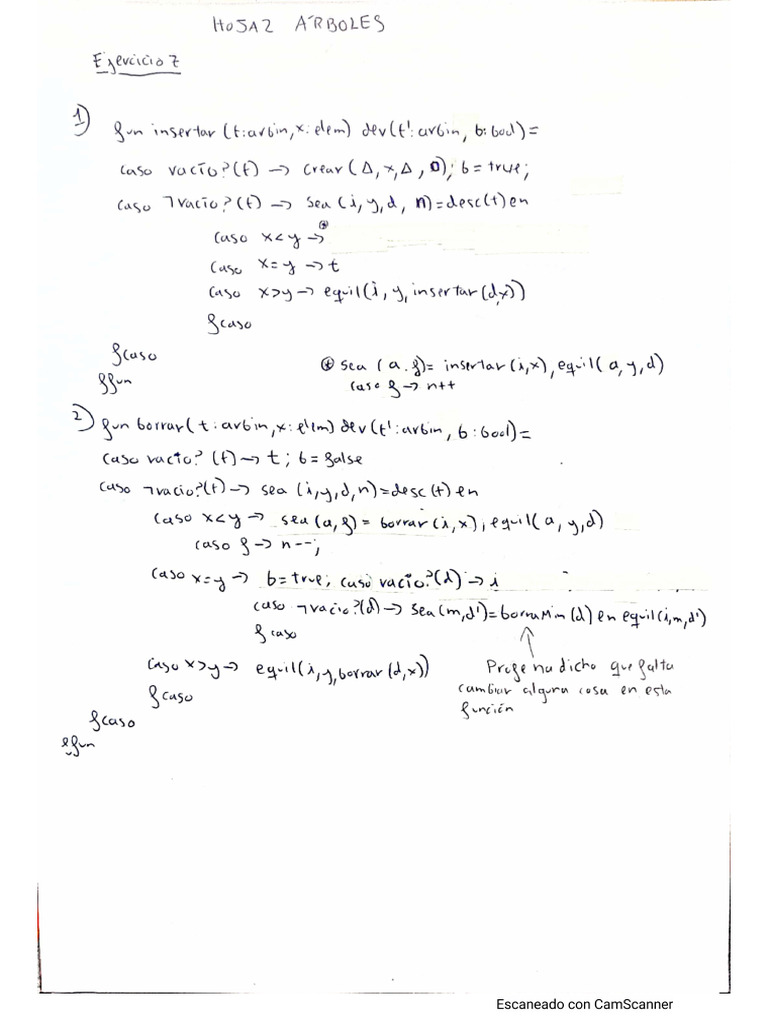 HOJA2 ÁRBOLES
Ejercicio 7
1) fun insertar (t:arbin, x:elem) dev (t':arbin, b:bool)=
caso vacío?(t) → crear (Δ, x, Δ, 0); b=true;
caso ¬vacío?(t) → sea (i, y, d, n)=desc(t) en
caso x<y → ⊛
caso x=y → t
caso x>y → equil(i, y, insertar(d,x))
fcaso
fcaso
ffun
⊛ sea (a,f)= insertar(i,x), equil(a,y,d)
caso f → n++
2) fun borrar(t:arbin, x:elem) dev(t':arbin, b:bool)=
caso vacio?(t) → t; b=false
caso ¬vacio?(t) → sea (i,y,d,n)=desc(t) en
caso x<y → sea(a,f)= borrar(i,x), equil(a,y,d)
caso f → n--;
caso x=y → b=true; caso vacio?(d) → i
caso ¬vacio?(d) → sea(m,d')=borraMin(d) en equil(i,m,d')
fcaso
caso x>y → equil(i,y,borrar(d,x))
fcaso
fcaso
ffun
Profe na dicho que falta
cambiar alguna cosa en esta
función
Escaneado con CamScanner